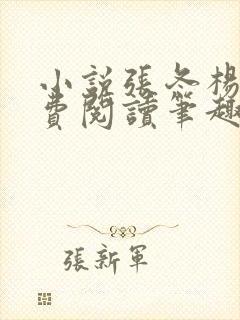 小說張冬楊
費閱讀筆趣
張新軍